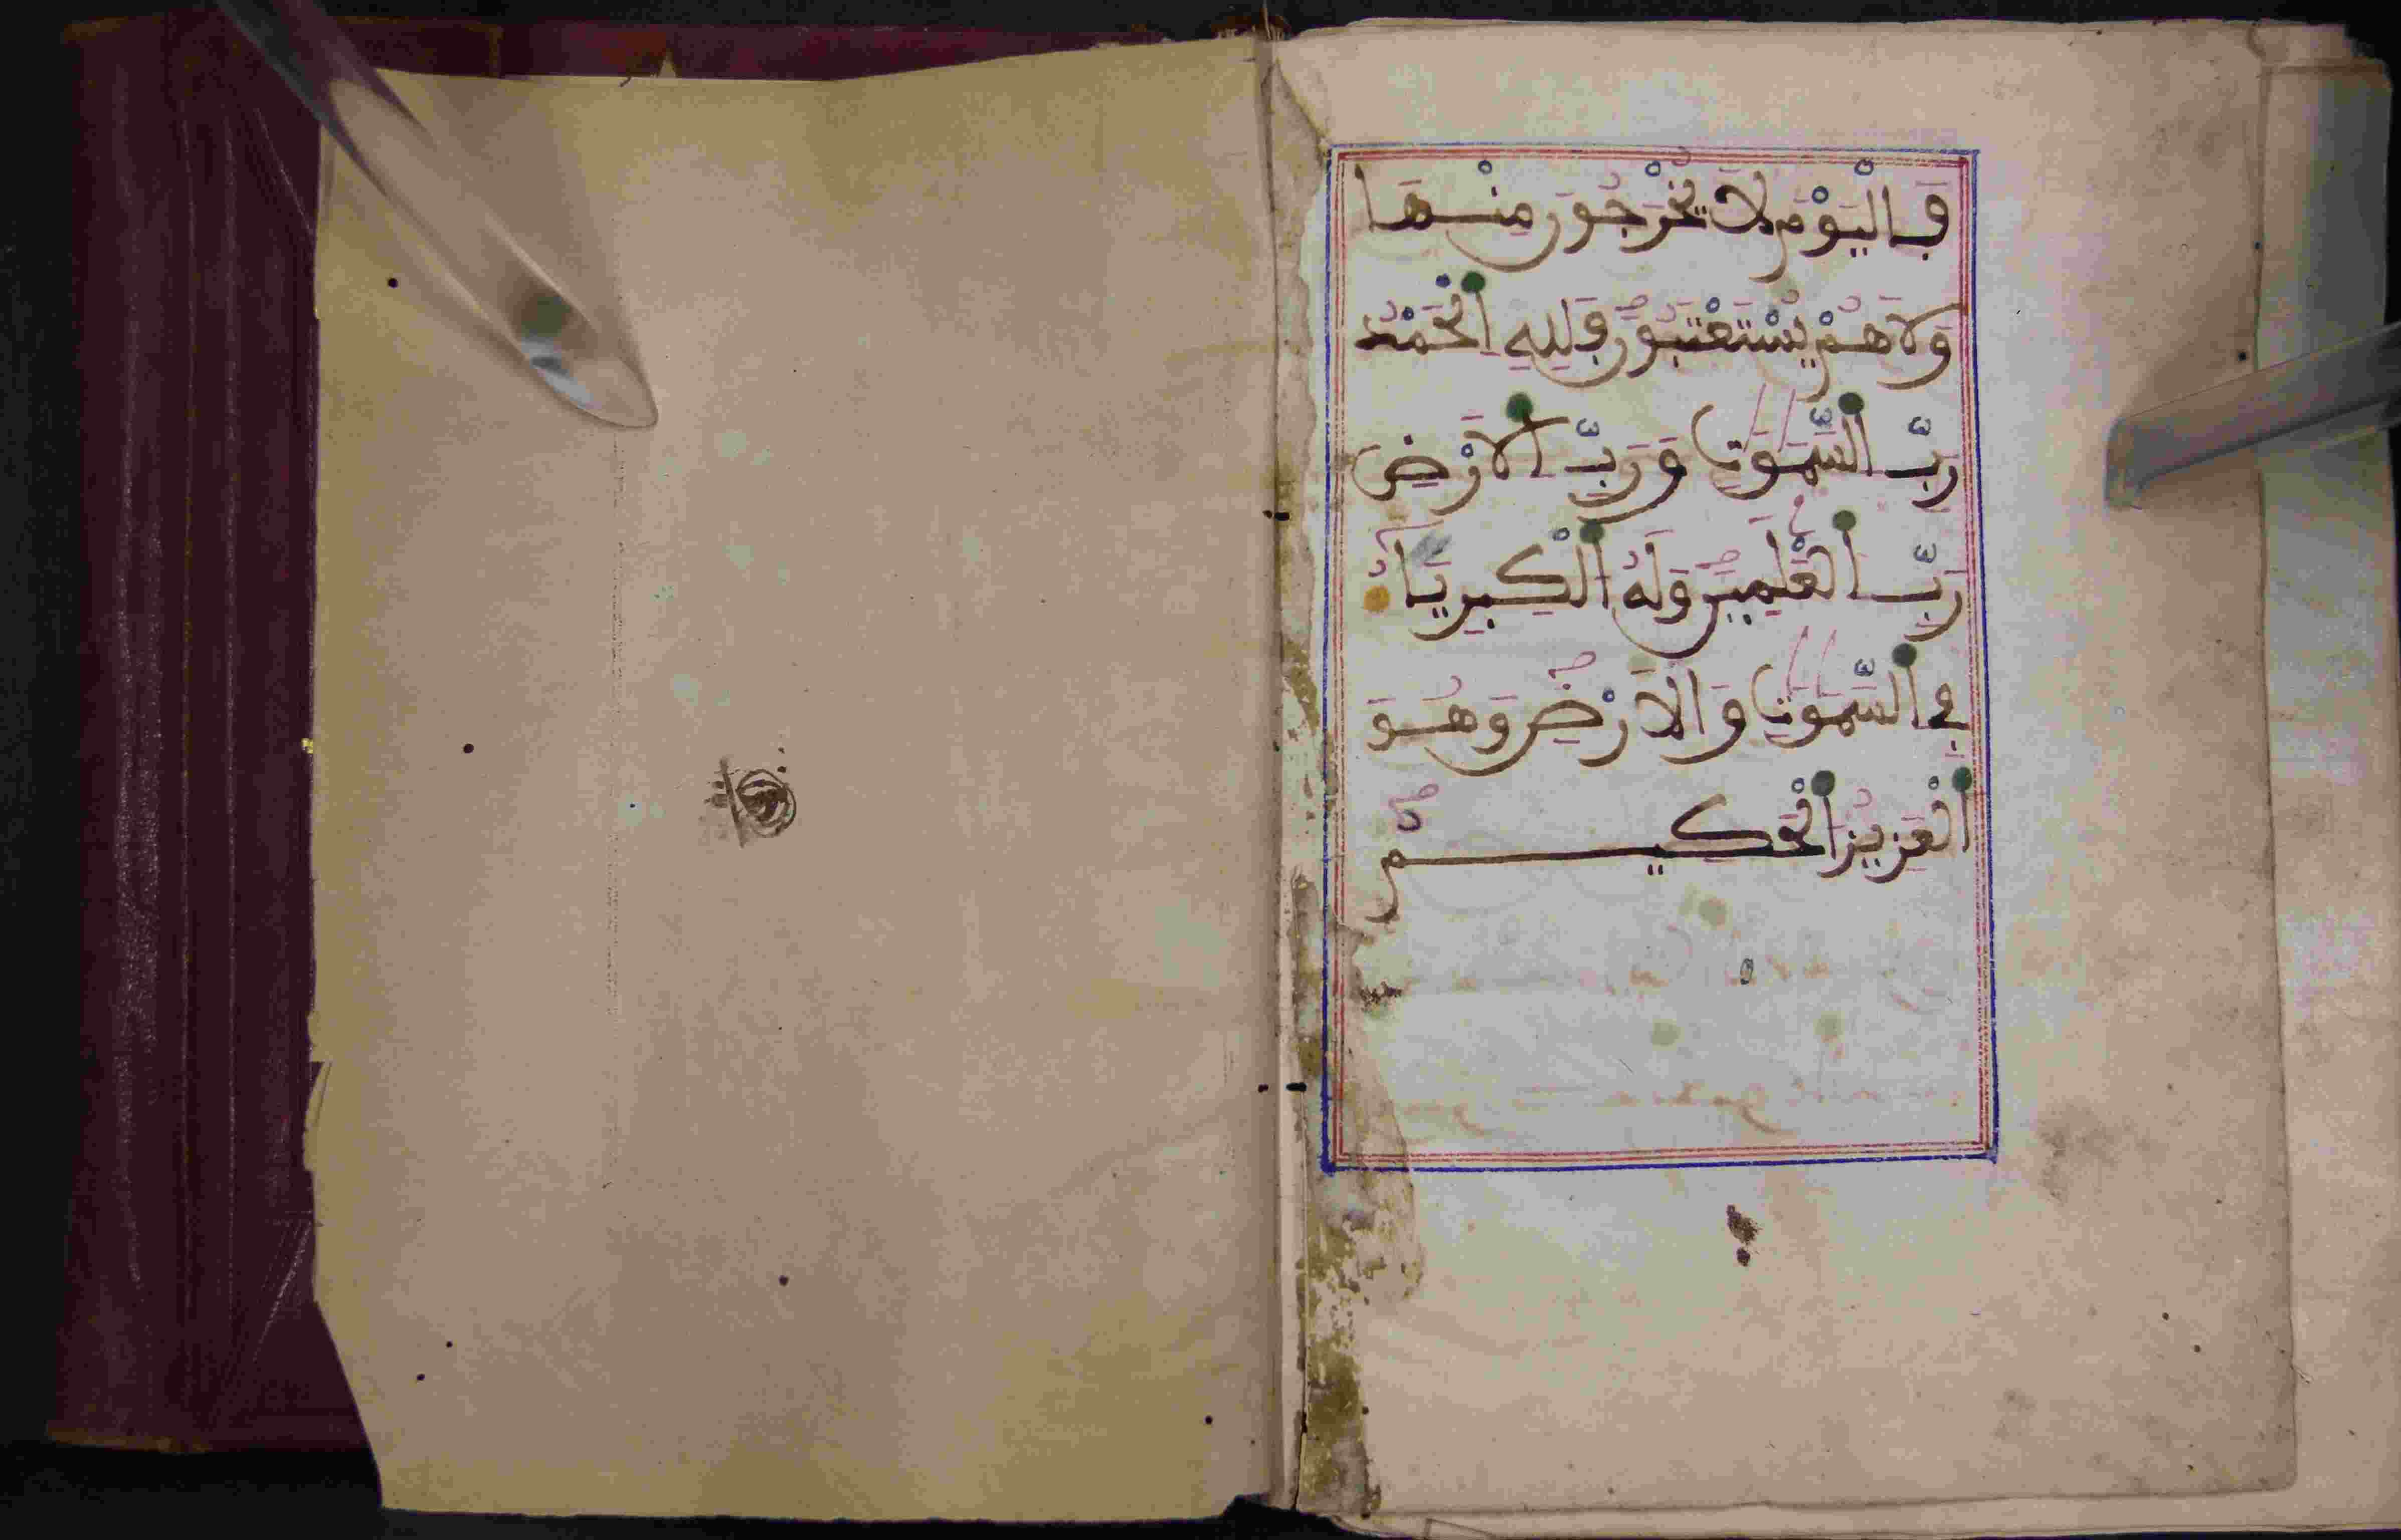 فَالْيَوْمَ لَا يُخْرَجُونَ مِنْهَا
وَلَا هُمْ يُسْتَعْتَبُونَ فَلِلهِ الْحَمْدُ
رَبِّ السَّمَٰوَٰتِ وَرَبِّ الَارْضِ
رَبِّ الْعَٰلَمِينَ وَلَهُ الْكِبْرِيَآءُ
فِي السَّمَٰوَٰتِ وَالَارْضِ وَهُوَ
الْعَزِيزُ الْحَكِيمُ